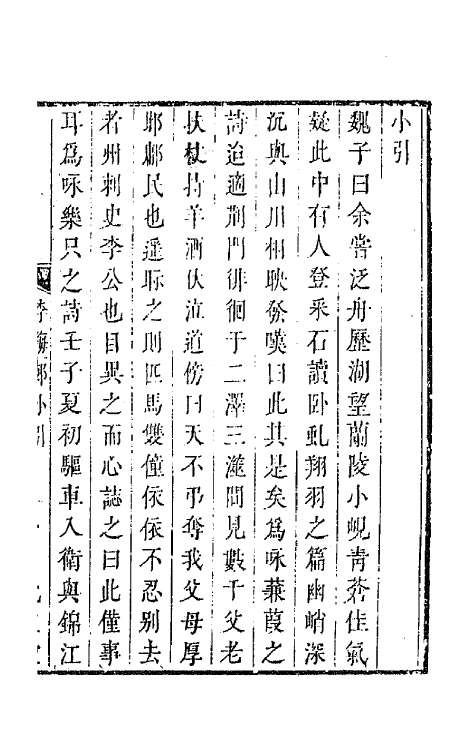 小引
魏子曰余嘗泛舟歷湖望蘭陵小峴青蒼佳氣
疑此中有人登采石讀卧虬翔羽之篇幽峭深
沉與山川相映發嘆曰此其是矣為咏蒹葭之
詩迨適荆門徘徊于二澤三澨間見數千父老
扶杖持羊酒伏泣道傍曰天不弔奪我父母厚
耶鄢民也遥眎之則匹馬雙僮依依不忍别去
者州刺史李公也目異之而心誌之曰此僅事
耳為咏樂只之詩壬子夏初驅車入衛與錦江
小引